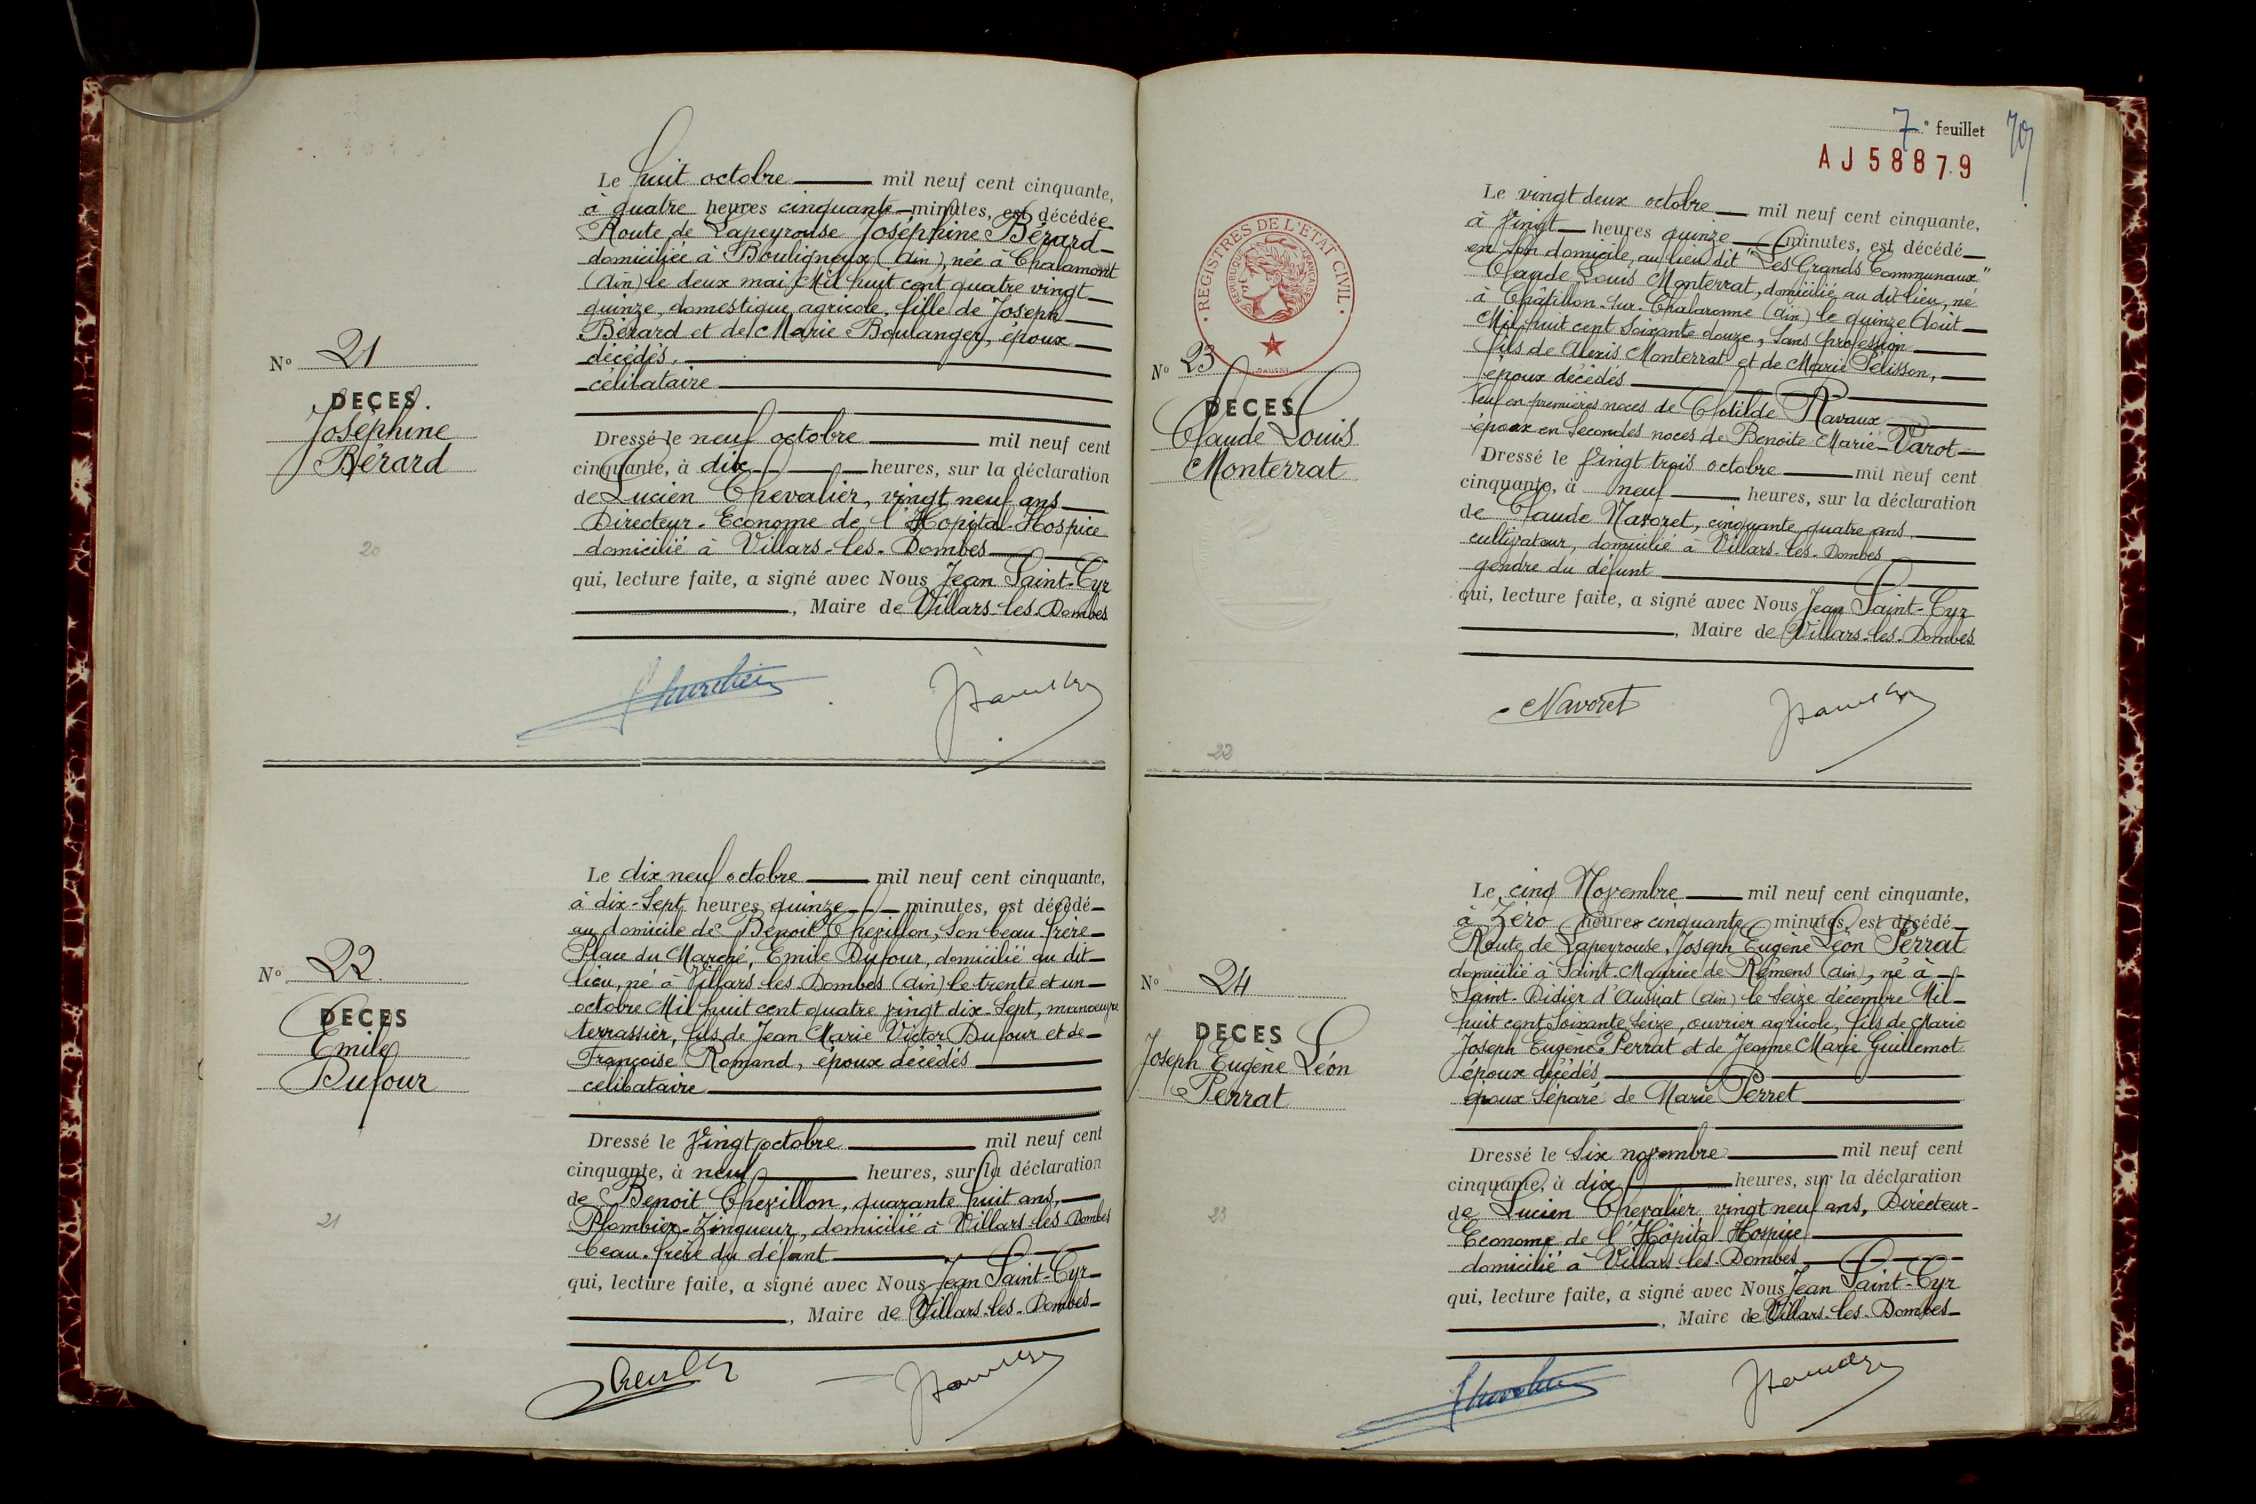 Le huit octobre mil neuf cent cinquante,
à quatre heures cinquante minutes, est décédée
Route de Lapeyrouse Joséphine Bérard
domiciliée à Bouligneux (Ain), née à Chalamont
(Ain) le deux mai Mil huit cent quatre vingt
quinze, domestique agricole, fille de Joseph
Bérard et de Marie Boulanger, époux
décédés.
célibataire
N° 21
DECES
Joséphine
Bérard
Dressé le neuf octobre mil neuf cent
cinquante, à dix heures, sur la déclaration
de Lucien Chevalier, vingt neuf ans
Directeur-Econome de l'Hopital-Hospice
domicilié à Villars-les-Dombes
qui, lecture faite, a signé avec Nous Jean Saint-Cyr
, Maire de Villars-les-Dombes
20
Le dix neuf octobre mil neuf cent cinquante,
à dix-sept heures quinze minutes, est décédé
au domicile de Benoit Chevillon, son beau frère
Place du Marché, Emile Dufour, domicilié au dit
lieu, né à Villars les Dombes (Ain) le trente et un
octobre Mil huit cent quatre vingt dix-sept, manoeuvre
terrassier, fils de Jean Marie Victor Dufour et de
Françoise Romand, époux décédés
célibataire
N° 22
DECES
Emile
Dufour
Dressé le vingt octobre mil neuf cent
cinquante, à neuf heures, sur la déclaration
de Benoit Chevillon, quarante huit ans,
Plombier-Zingueur, domicilié à Villars-les-Dombes
beau-frère du défunt
qui, lecture faite, a signé avec Nous Jean Saint-Cyr
, Maire de Villars-les-Dombes
21
7e feuillet
AJ58879
REGISTRES DE L'ETAT CIVIL
REPUBLIQUE FRANÇAISE
Le vingt deux octobre mil neuf cent cinquante,
à vingt heures quinze minutes, est décédé
en son domicile, au lieu dit "Les Grands Communaux"
Claude Louis Monterrat, domicilié au dit lieu, né
à Châtillon-sur-Chalaronne (Ain) le quinze Août
Mil huit cent soixante douze, sans profession
fils de Alexis Monterrat et de Marie Pélisson,
époux décédés
Veuf en premières noces de Clotilde Ravaux
époux en secondes noces de Benoite Marie Varot
N° 23
DECES
Claude Louis
Monterrat
Dressé le vingt trois octobre mil neuf cent
cinquante, à neuf heures, sur la déclaration
de Claude Navoret, cinquante quatre ans
cultivateur, domicilié à Villars-les-Dombes
gendre du défunt
qui, lecture faite, a signé avec Nous Jean Saint-Cyr
, Maire de Villars-les-Dombes
Navoret
22
Le cinq Novembre mil neuf cent cinquante,
à Zéro heures cinquante minutes, est décédé
Route de Lapeyrouse, Joseph Eugène Léon Perrat
domicilié à Saint-Maurice de Rémens (Ain), né à
Saint-Didier d'Aussiat (Ain) le seize décembre Mil
huit cent soixante seize, ouvrier agricole, fils de Marie
Joseph Eugène Perrat et de Jeanne Marie Guillemot
époux décédés
époux séparé de Marie Perret
N° 24
DECES
Joseph Eugène Léon
Perrat
Dressé le six novembre mil neuf cent
cinquante, à dix heures, sur la déclaration
de Lucien Chevalier vingt neuf ans, Directeur-
Econome de l'Hôpital Hospice
domicilié à Villars les Dombes
qui, lecture faite, a signé avec Nous Jean Saint-Cyr
, Maire de Villars-les-Dombes
23